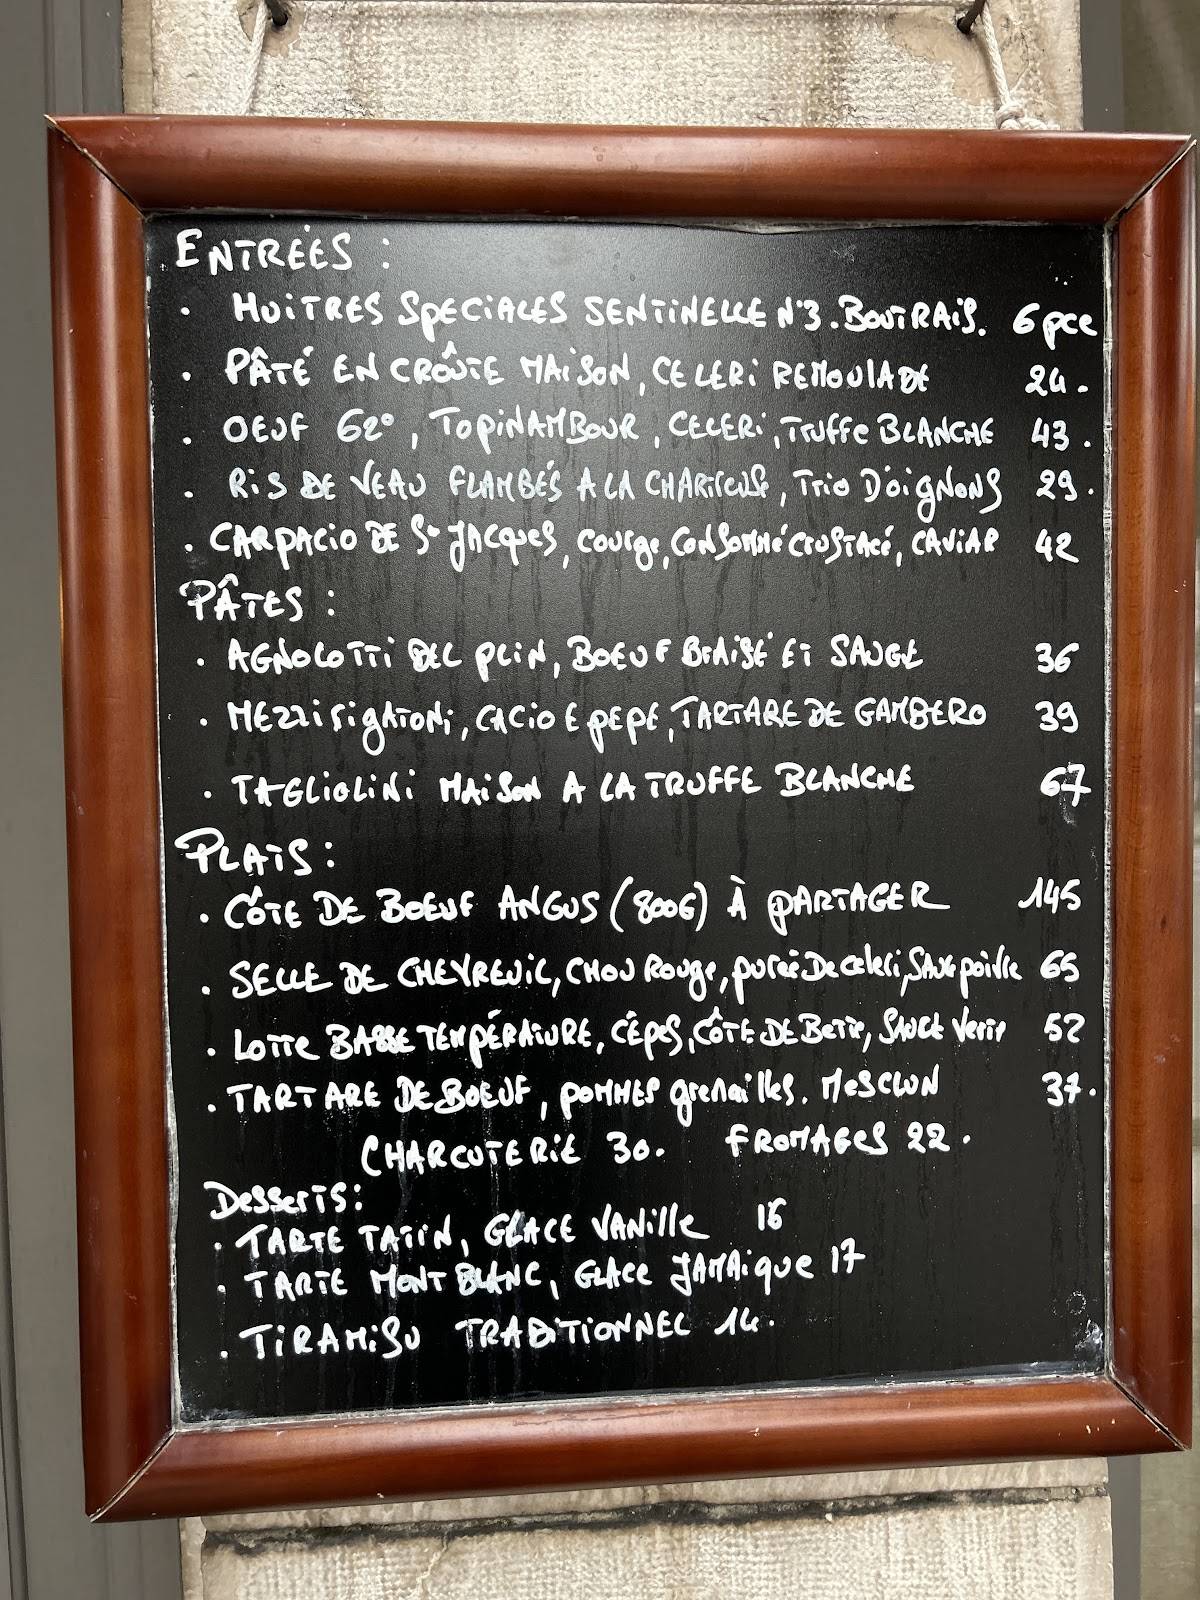 ENTRÉES :
. HUITRES SPECIALES SENTINELLE N°3. BOUTRAIS. 6 pce
. PÂTÉ EN CROÛTE MAISON, CELERI REMOULADE 24.
. OEUF 62°, TOPINAMBOUR, CELERI, TRUFFE BLANCHE 43.
. RIS DE VEAU FLAMBÉS A LA CHARTREUSE, TRIO D'OIGNONS 29.
. CARPACIO DE St JACQUES, COURGE, CONSOMMÉ CRUSTACÉ, CAVIAR 42
PÂTES :
. AGNOLOTTI DEL PLIN, BOEUF BRAISÉ ET SAUGE 36
. MEZZI RIGATONI, CACIO E PEPE, TARTARE DE GAMBERO 39
. TAGLIOLINI MAISON A LA TRUFFE BLANCHE 67
PLATS :
. CÔTE DE BOEUF ANGUS (800G) À PARTAGER 145
. SELLE DE CHEVREUIL, CHOU ROUGE, PURÉE DE CELERI, SAUCE POIVRE 65
. LOTTE BASSE TEMPÉRATURE, CÈPES, CÔTE DE BETTE, SAUCE VERTE 52
. TARTARE DE BOEUF, POMMES GRENAILLES. MESCLUN 37.
CHARCUTERIE 30. FROMAGES 22.
DESSERTS :
. TARTE TATIN, GLACE VANILLE 16
. TARTE MONT BLANC, GLACE JAMAIQUE 17
. TIRAMISU TRADITIONNEL 14.